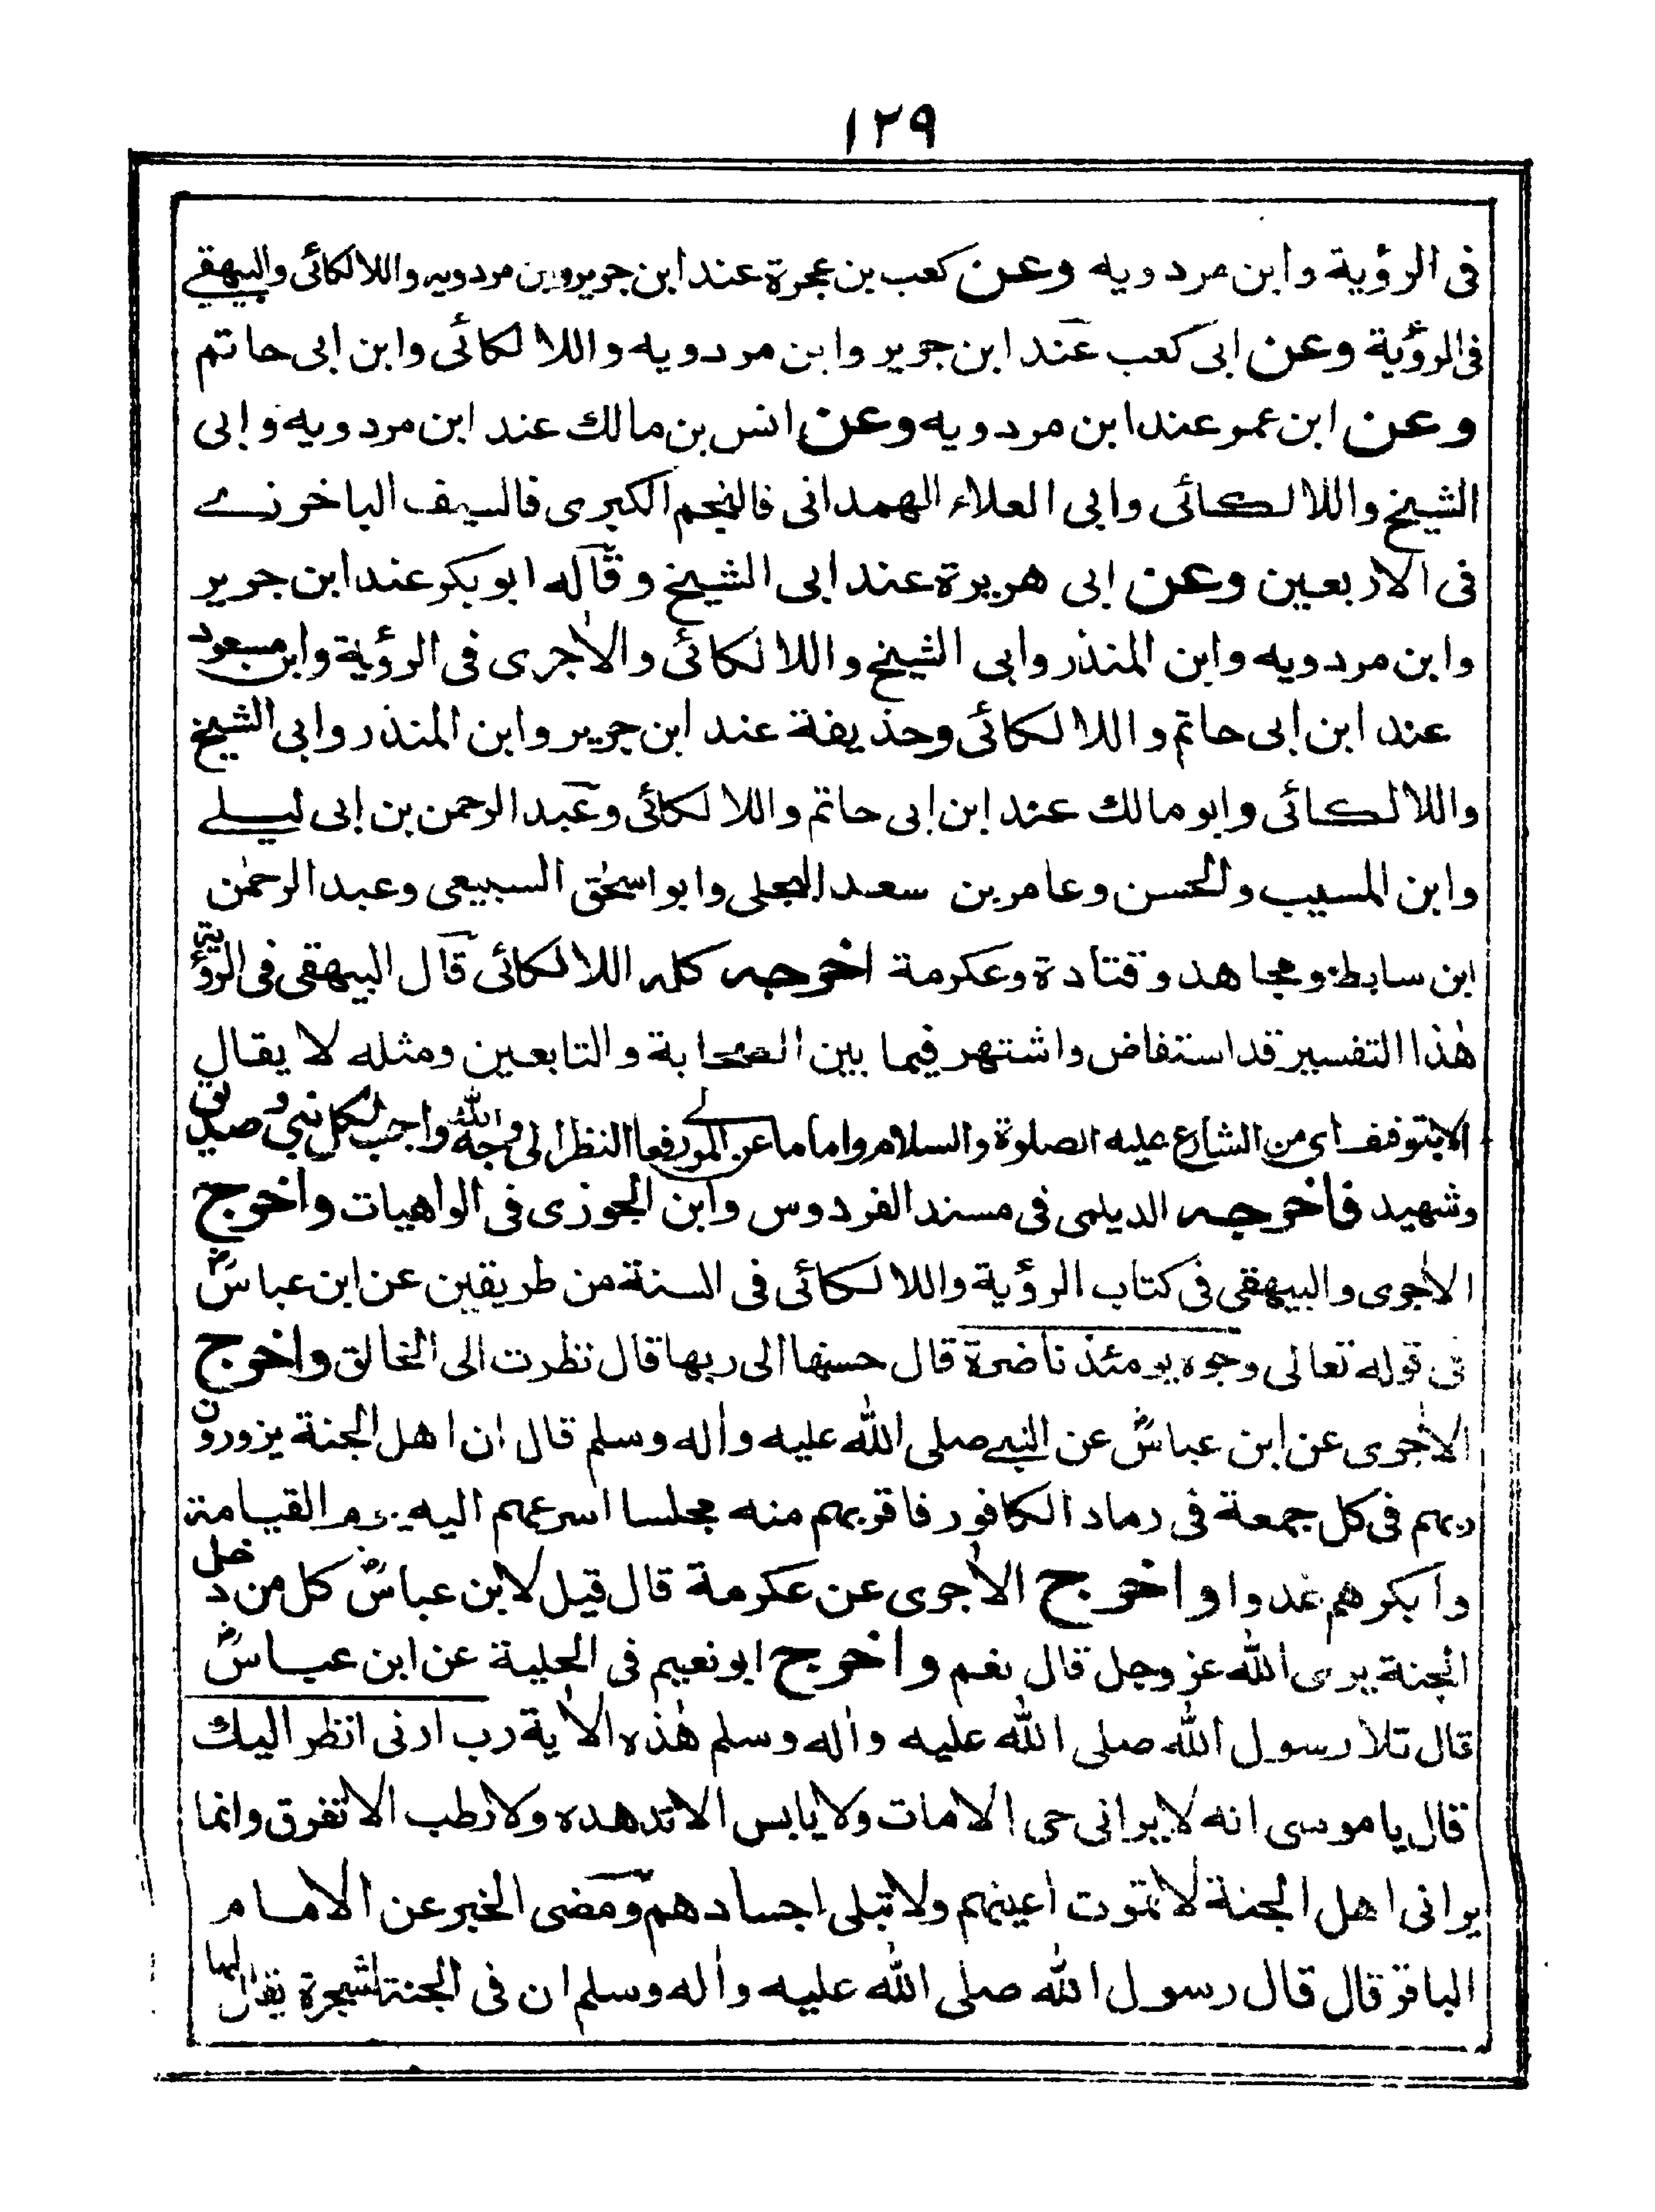 ١٢٩
فى الرؤية وابن مردويه وعن كعب بن عجرة عند ابن جرير وابن مردويه واللالكائى والبيهقي
فى الرؤية وعن ابى كعب عند ابن جرير وابن مردويه واللالكائى وابن ابى حاتم
وعن ابن عمر عند ابن مردويه وعن انس بن مالك عند ابن مردويه وابى
الشيخ واللالكائى وابى العلاء الهمدانى فالنجم الكبرى فالسيف الباخرزے
فى الاربعين وعن ابى هريرة عند ابى الشيخ وقاله ابو بكر عند ابن جرير
وابن مردويه وابن المنذر وابى الشيخ واللالكائى والأجرى فى الرؤية وابن مسعود
عند ابن ابى حاتم واللالكائى وحذيفة عند ابن جرير وابن المنذر وابى الشيخ
واللالكائى وابو مالك عند ابن ابى حاتم واللالكائى وعبد الرحمن بن ابى ليلے
وابن المسيب والحسن وعامر بن سعد البجلى وابو اسحٰق السبيعى وعبد الرحمٰن
ابن سابط ومجاهد وقتادة وعكرمة اخرجه كله اللالكائى قال البيهقى فى الرؤية
هٰذا التفسير قد استفاض واشتهر فيما بين الصحابة والتابعين ومثله لا يقال
الا بتوقف اى من الشارع عليه الصلوة والسلام واما ما عن المورفعا النظر الى وجه الله واجب لكل نبي وصديق
وشهيد فاخرجه الديلمى فى مسند الفردوس وابن الجوزى فى الواهيات واخرج
الأجرى والبيهقى فى كتاب الرؤية واللالكائى فى السنة من طريقين عن ابن عباسؓ
فى قوله تعالى وجوه يومئذ ناضرة قال حسنها الى ربها قال نظرت الى الخالق واخرج
الأجرى عن ابن عباسؓ عن النبے صلى الله عليه وأله وسلم قال ان اهل الجنة يزورون
ربهم فى كل جمعة فى رماد الكافور فاقربهم منه مجلسا اسرعهم اليه يوم القيامة
وابكرهم غدوا واخرج الأجرى عن عكرمة قال قيل لابن عباسؓ كل من دخل
الجنة يرى الله عز وجل قال نعم واخرج ابو نعيم فى الحلية عن ابن عباسؓ
قال تلا رسول الله صلى الله عليه وأله وسلم هٰذه الأية رب ارنى انظر اليك
قال يا موسى انه لا يرانى حى الا مات ولا يابس الا تدهده ولا رطب الا تفرق وانما
يرانى اهل الجنة لا تموت اعينهم ولا تبلى اجسادهم ومضى الخبر عن الامام
الباقر قال قال رسول الله صلى الله عليه وأله وسلم ان فى الجنة لشجرة يقال لها